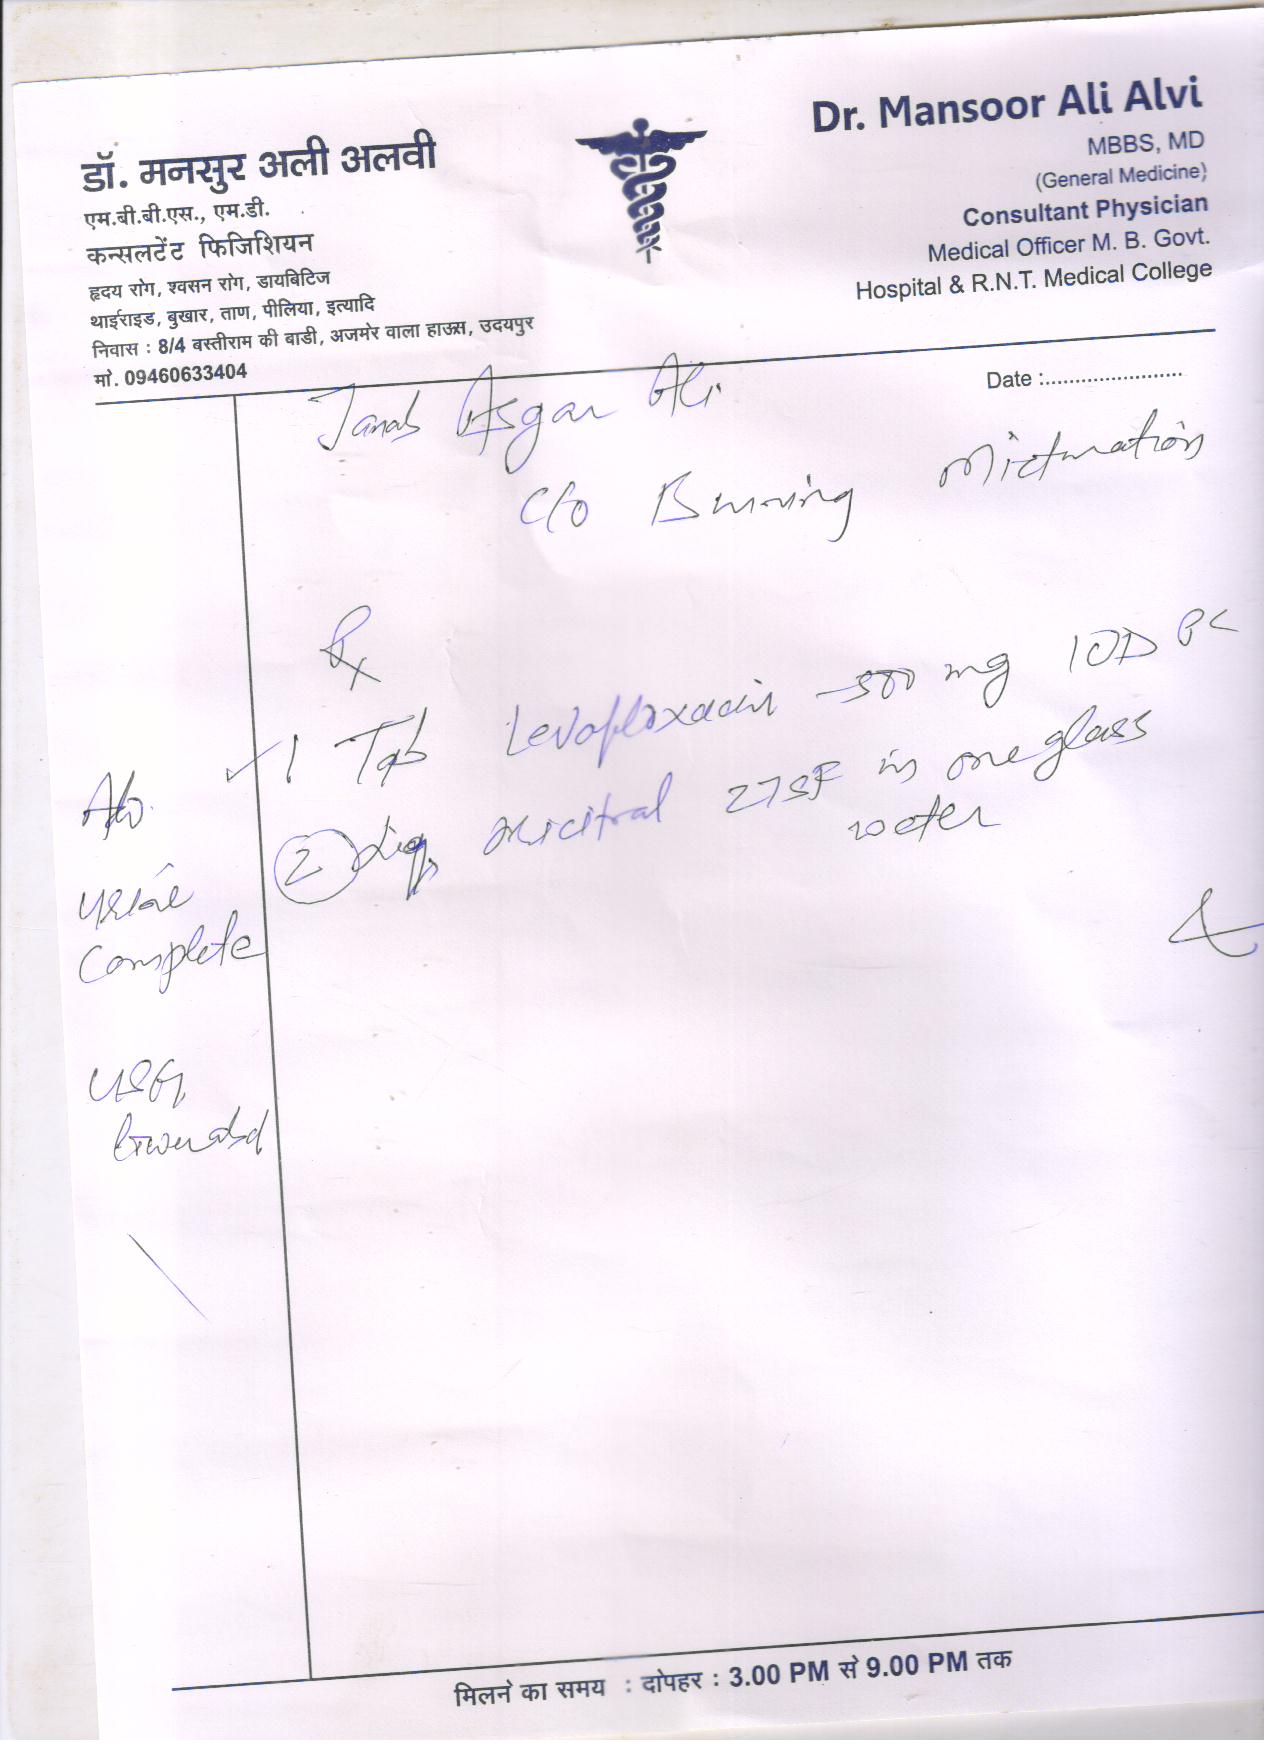 डॉ. मनसुर अली अलवी
एम.बी.बी.एस., एम.डी.
कन्सलटेंट फिजिशियन
हृदय रोग, श्वसन रोग, डायबिटिज
थाईराइड, बुखार, ताण, पीलिया, इत्यादि
निवास : 8/4 बस्तीराम की बाडी, अजमेर वाला हाउस, उदयपुर
मो. 09460633404
Dr. Mansoor Ali Alvi
MBBS, MD
(General Medicine)
Consultant Physician
Medical Officer M. B. Govt.
Hospital & R.N.T. Medical College
Date :.......................
Janab Asgar Ali
C/o Burning Micturation
Rx
1 Tab Levofloxacin 500 mg 1OD PC
2 Liq. 2TSF in one glass
water
Adv.
Urine
Complete
USG
मिलने का समय : दोपहर : 3.00 PM से 9.00 PM तक